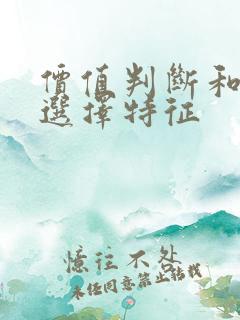 價值判斷和
選擇特征
憶往不处
未任同意禁止转载